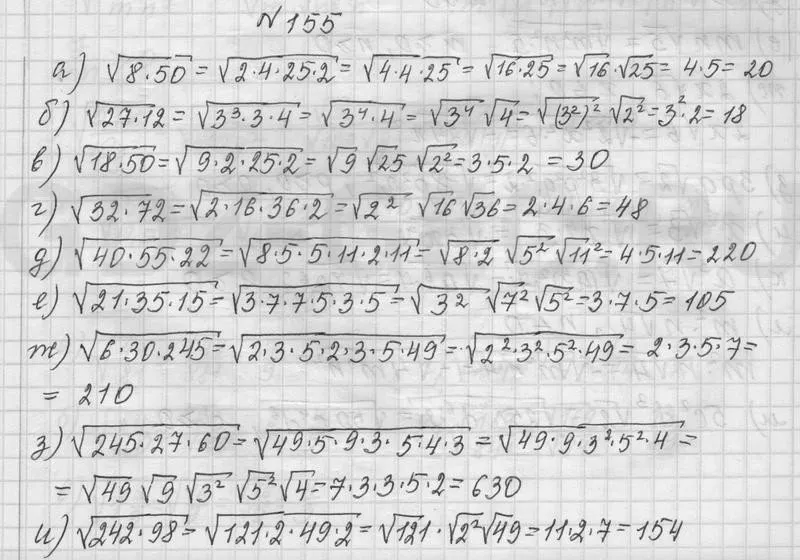 №155
а) √8·50 = √2·4·25·2 = √4·4·25 = √16·25 = √16·√25 = 4·5 = 20
б) √27·12 = √3³·3·4 = √3⁴·4 = √3⁴ √4 = √(3²)² √2² = 3²·2 = 18
в) √18·50 = √9·2·25·2 = √9 √25 √2² = 3·5·2 = 30
г) √32·72 = √2·16·36·2 = √2² √16 √36 = 2·4·6 = 48
д) √40·55·22 = √8·5·5·11·2·11 = √8·2 √5² √11² = 4·5·11 = 220
е) √21·35·15 = √3·7·7·5·3·5 = √3² √7² √5² = 3·7·5 = 105
ж) √6·30·245 = √2·3·5·2·3·5·49 = √2²·3²·5²·49 = 2·3·5·7 =
= 210
з) √245·27·60 = √49·5·9·3·5·4·3 = √49·9·3²·5²·4 =
= √49 √9 √3² √5² √4 = 7·3·3·5·2 = 630
и) √242·98 = √121·2·49·2 = √121·√2² √49 = 11·2·7 = 154